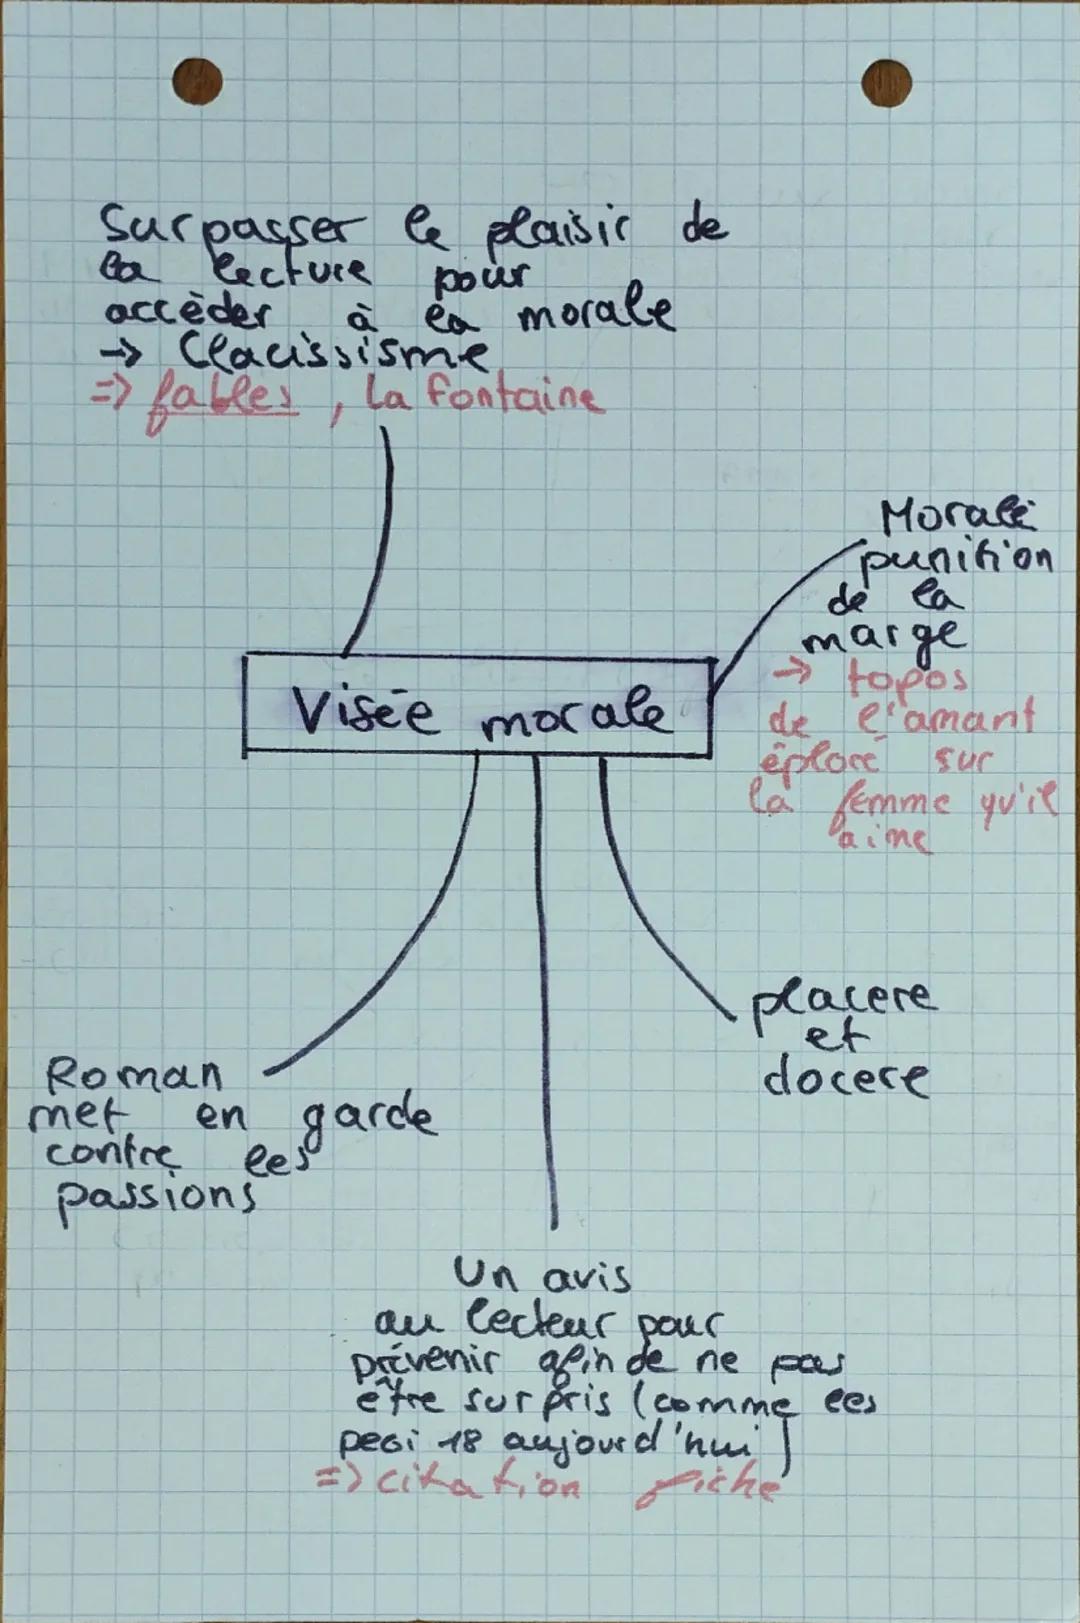 Surpasser le plaisir de
la lecture pour
accèder à la morale
→ Clacissisme
=> fables, La Fontaine
Morale
punition
de la
marge
→ topos
de l'amant
éploré sur
la femme qu'il
aime
Visée morale
placere
et
docere
Roman
met en garde
contre les
passions
Un avis
au lecteur pour
prévenir afin de ne pas
être surpris (comme les
pegi 18 aujourd'hui)
=> citation fiche